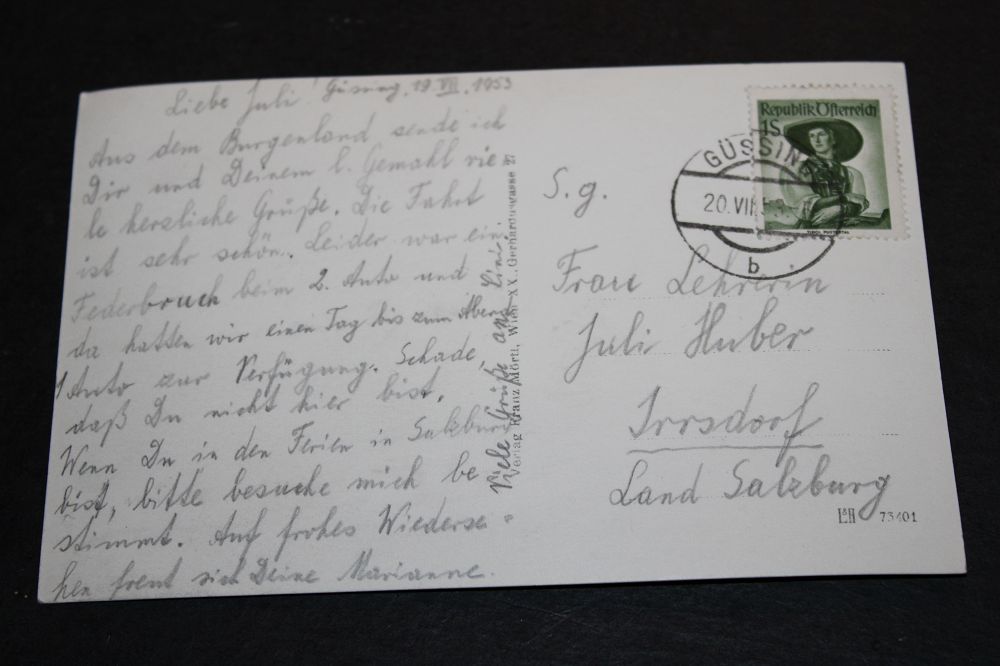 Liebe Juli! Güssing, 19.VII.1953
Aus dem Burgenland sende ich
Dir und Deinem l. Gemahl vie
le herzliche Grüße. Die Fahrt
ist sehr schön. Leider war ein
Federbruch beim 2. Auto und
da hatten wir einen Tag bis zum Abend
1 Auto zur Verfügung. Schade,
daß Du nicht hier bist.
Wenn Du in den Ferien in Salzburg
bist, bitte besuche mich be
stimmt. Auf frohes Wiederse-
hen freut sich Deine Marianne.
Viele Grüße an Lini.
Verlag Franz Mörtl, Wien XX., Gerhardusgasse 27
Republik Österreich
1S
TIROL PUSTERTAL
GÜSSING
20.VII.5
b
S. g.
Frau Lehrerin
Juli Huber
Irrsdorf
Land Salzburg
L&H 73401